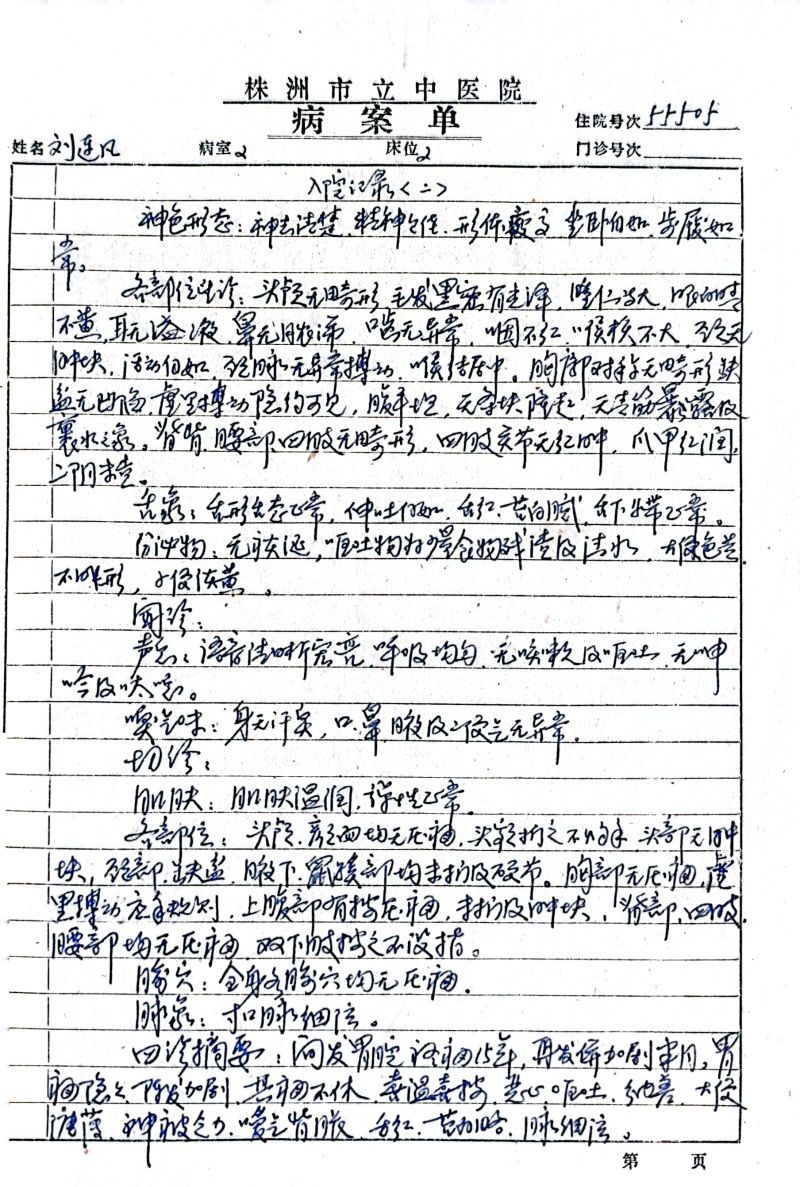 株洲市立中医院
病案单
住院号次 55505
姓名 刘连凤 病室 2 床位 2 门诊号次
入院记录<二>
神色形态：神志清楚，精神欠佳，形体瘦高，坐卧自如，步履如
常。
各部位望诊：头颅无畸形，毛发黑密有光泽，瞳仁等大，眼白睛
不黄，耳无溢液，鼻无脓涕，口齿无异常，咽不红，喉核不大，颈无
肿块，活动自如，颈脉无异常搏动，喉结居中。胸廓对称无畸形，缺
盆无凹陷，虚里搏动隐约可见，腹平坦，无穿块隆起，无青筋暴露及
囊水之象。背脊、腰部、四肢无畸形，四肢关节无红肿，爪甲红润，
二阴未查。
舌象：舌形舌态正常，伸吐自如，舌红，苔白腻，舌下络正常。
分泌物：无痰涎，呕吐物为少量食物残渣及清水，大便色黄
不成形，小便淡黄。
闻诊：
声息：语音清晰宏亮，呼吸均匀，无咳嗽及呕吐，无呻
吟及哎噫。
嗅气味：身无汗臭，口、鼻、腋及二便气无异常。
切诊：
肌肤：肌肤温润，弹性正常。
各部位：头颅、颜面均无压痛，头额扪之不灼手，头部无肿
块，颈部、缺盆、腋下、鼠蹊部均未扪及硬节。胸部无压痛，虚
里搏动应手规则，上腹部有按压痛，未扪及肿块，脊部、四肢、
腰部均无压痛，双下肢按之不没指。
腧穴：全身各腧穴均无压痛。
脉象：寸口脉细弦。
四诊摘要：间发胃脘疼痛15年，再发并加剧半月，胃
痛隐隐，阵发加剧，其痛不休，喜温喜按，恶心呕吐，纳差，大便
溏薄，神疲乏力，嗳气背胀，舌红，苔白，脉细弦。
第 页